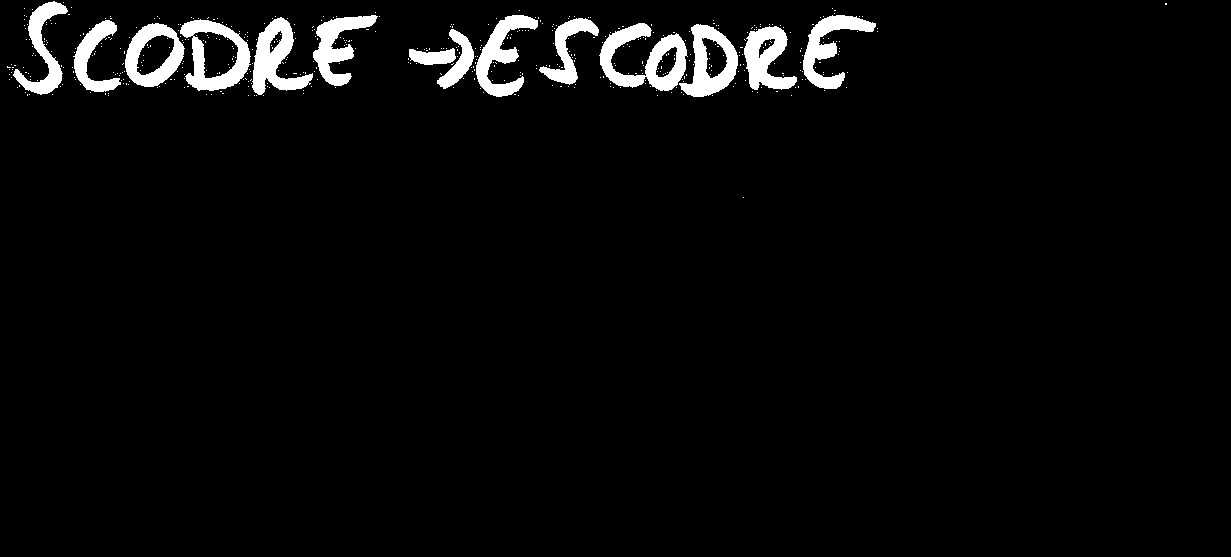 SCODRE → ESCODRE